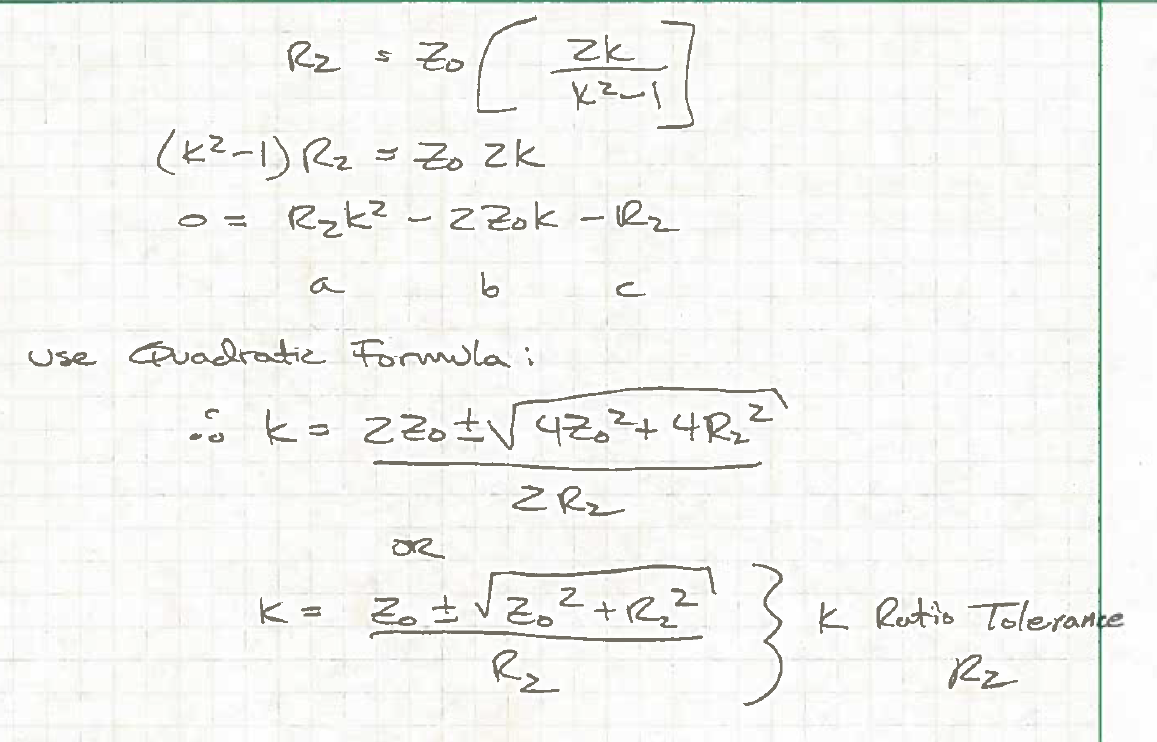 R₂ = Z₀ [ 2k / (k² - 1) ]
(k²-1) R₂ = Z₀ 2k
0 = R₂k² - 2Z₀k - R₂
a b c
use Quadratic Formula:
∴ k = (2Z₀ ± √(4Z₀² + 4R₂²)) / 2R₂
OR
k = (Z₀ ± √(Z₀² + R₂²)) / R₂ } K Ratio Tolerance
R₂